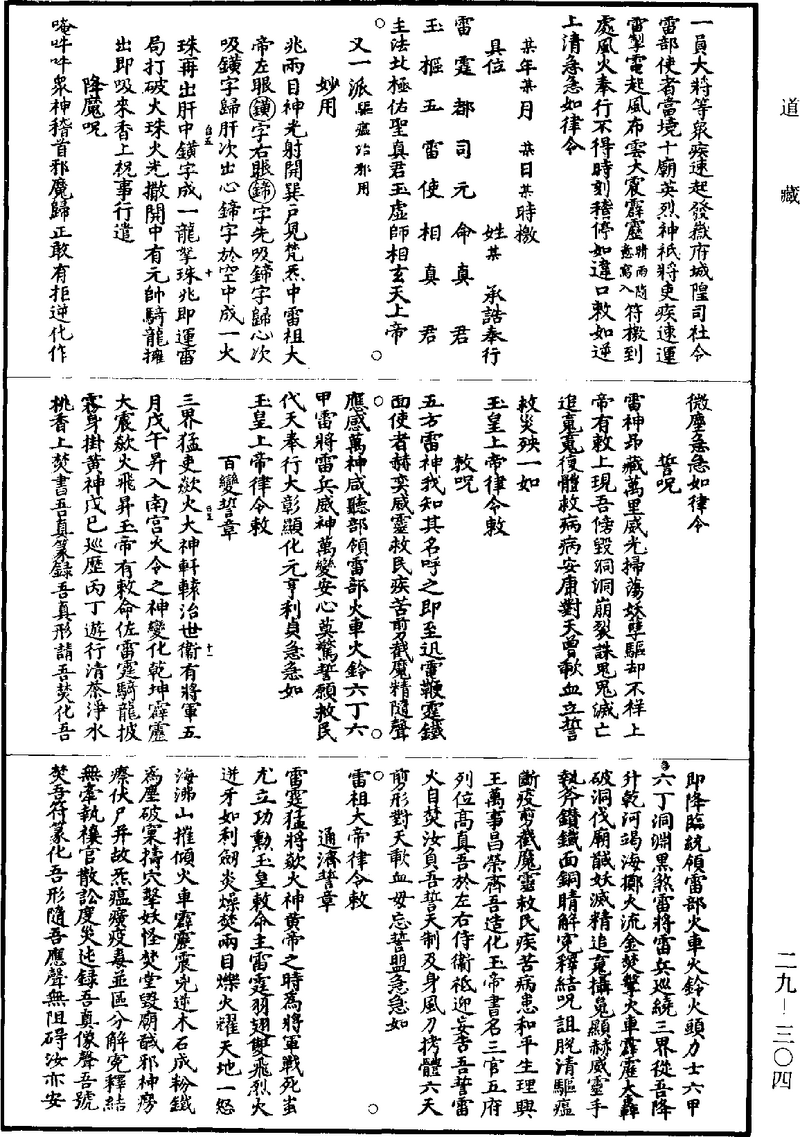 道藏
一員大將等眾疾速起發嶽府城隍司社令
雷部使者當境十廟英烈神祇將吏疾速運
雷掣電起風布雲大震霹靂晴雨隨意寫入符檄到
處風火奉行不得時刻稽停如違口敕如逆
上清急急如律令
某年某月 某日某時檄
具位 姓某 承誥奉行
雷霆都司元命真君
玉樞五雷使相真君
主法北極佑聖真君玉虛師相玄天上帝
又一派驅瘟治邪用
妙用
兆兩目神光射開巽戶見梵炁中雷祖大
帝左眼鐄字右眼鍗字先吸鍗字歸心次
吸鐄字歸肝次出心鍗字於空中成一火
珠再出肝中鐄字成一龍挐珠兆即運雷
局打破火珠火光撒開中有元帥騎龍擁
出即吸來香上祝事行遣
降魔咒
唵吽吽眾神稽首邪魔歸正敢有拒逆化作
微塵急急如律令
誓咒
雷神昂藏萬里威光掃蕩妖孽驅却不祥上
帝有敕上現吾傍毀洞洞崩裂誅鬼鬼滅亡
追䰟䰟復體救病病安康對天曾歃血立誓
救災殃一如
玉皇上帝律令敕
敕咒
五方雷神我知其名呼之即至迅電鞭霆鐵
面使者赫奕威靈救民疾苦剪截魔精隨聲
應感萬神咸聽部領雷部火車火鈴六丁六
甲雷將雷兵威神萬變安心莫驚誓願救民
代天奉行大彰顯化元亨利貞急急如
玉皇上帝律令敕
百變誓章
三界猛吏歘火大神軒轅治世衛有將軍五
月戊午昇入南宮火令之神變化乾坤霹靂
大震歘火飛昇玉帝有敕命佐雷霆騎龍披
霧身掛黃神戊巳巡歷丙丁遊行清齋淨水
桃香上焚書吾真篆錄吾真形請吾焚化吾
即降臨統領雷部火車火鈴火頭力士六甲
六丁洞淵黑煞雷將雷兵巡繞三界從吾降
升乾河竭海擲火流金焚擊火車霹靂大轟
破洞伐廟馘妖滅精追䰟攝䰟顯赫威靈手
執斧鑽鐵面銅睛解冤釋結咒詛脫清驅瘟
斷疫剪截魔靈救民疾苦病患和平生理興
王萬事昌榮齊吾造化玉帝書名三官五府
列位高真吾於左右侍衛祇迎妄書吾誓雷
火自焚汝負吾誓天制及身風刀拷體六天
剪形對天歃血毋忘誓盟急急如
雷祖大帝律令敕
通濟誓章
雷霆猛將歘火神黃帝之時為將軍戰死蚩
尤立功勳玉皇敕命主雷霆羽翅雙飛烈火
迸牙如利劒炎燥焚兩目爍火耀天地一怒
海沸山摧傾火車霹靂震兇逆木石成粉鐵
為塵破窠擣穴擊妖怪焚堂毀廟馘邪神癆
瘵伏尸并故炁瘟癀疫毒並區分解冤釋結
無牽執禳官散訟度災迍錄吾真像聲吾號
焚吾符篆化吾形隨吾應聲無阻碍汝亦安
二九—三〇四